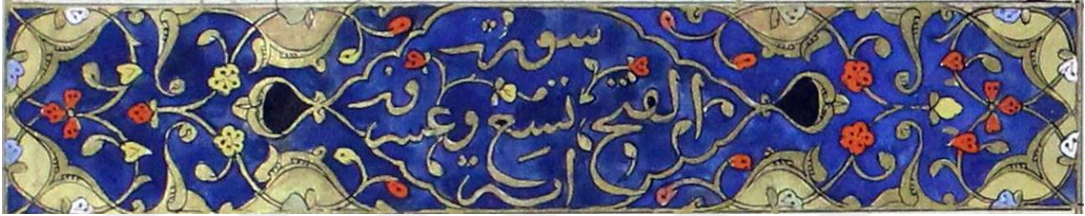 سورة
الفتح تسع وعشرون
آية